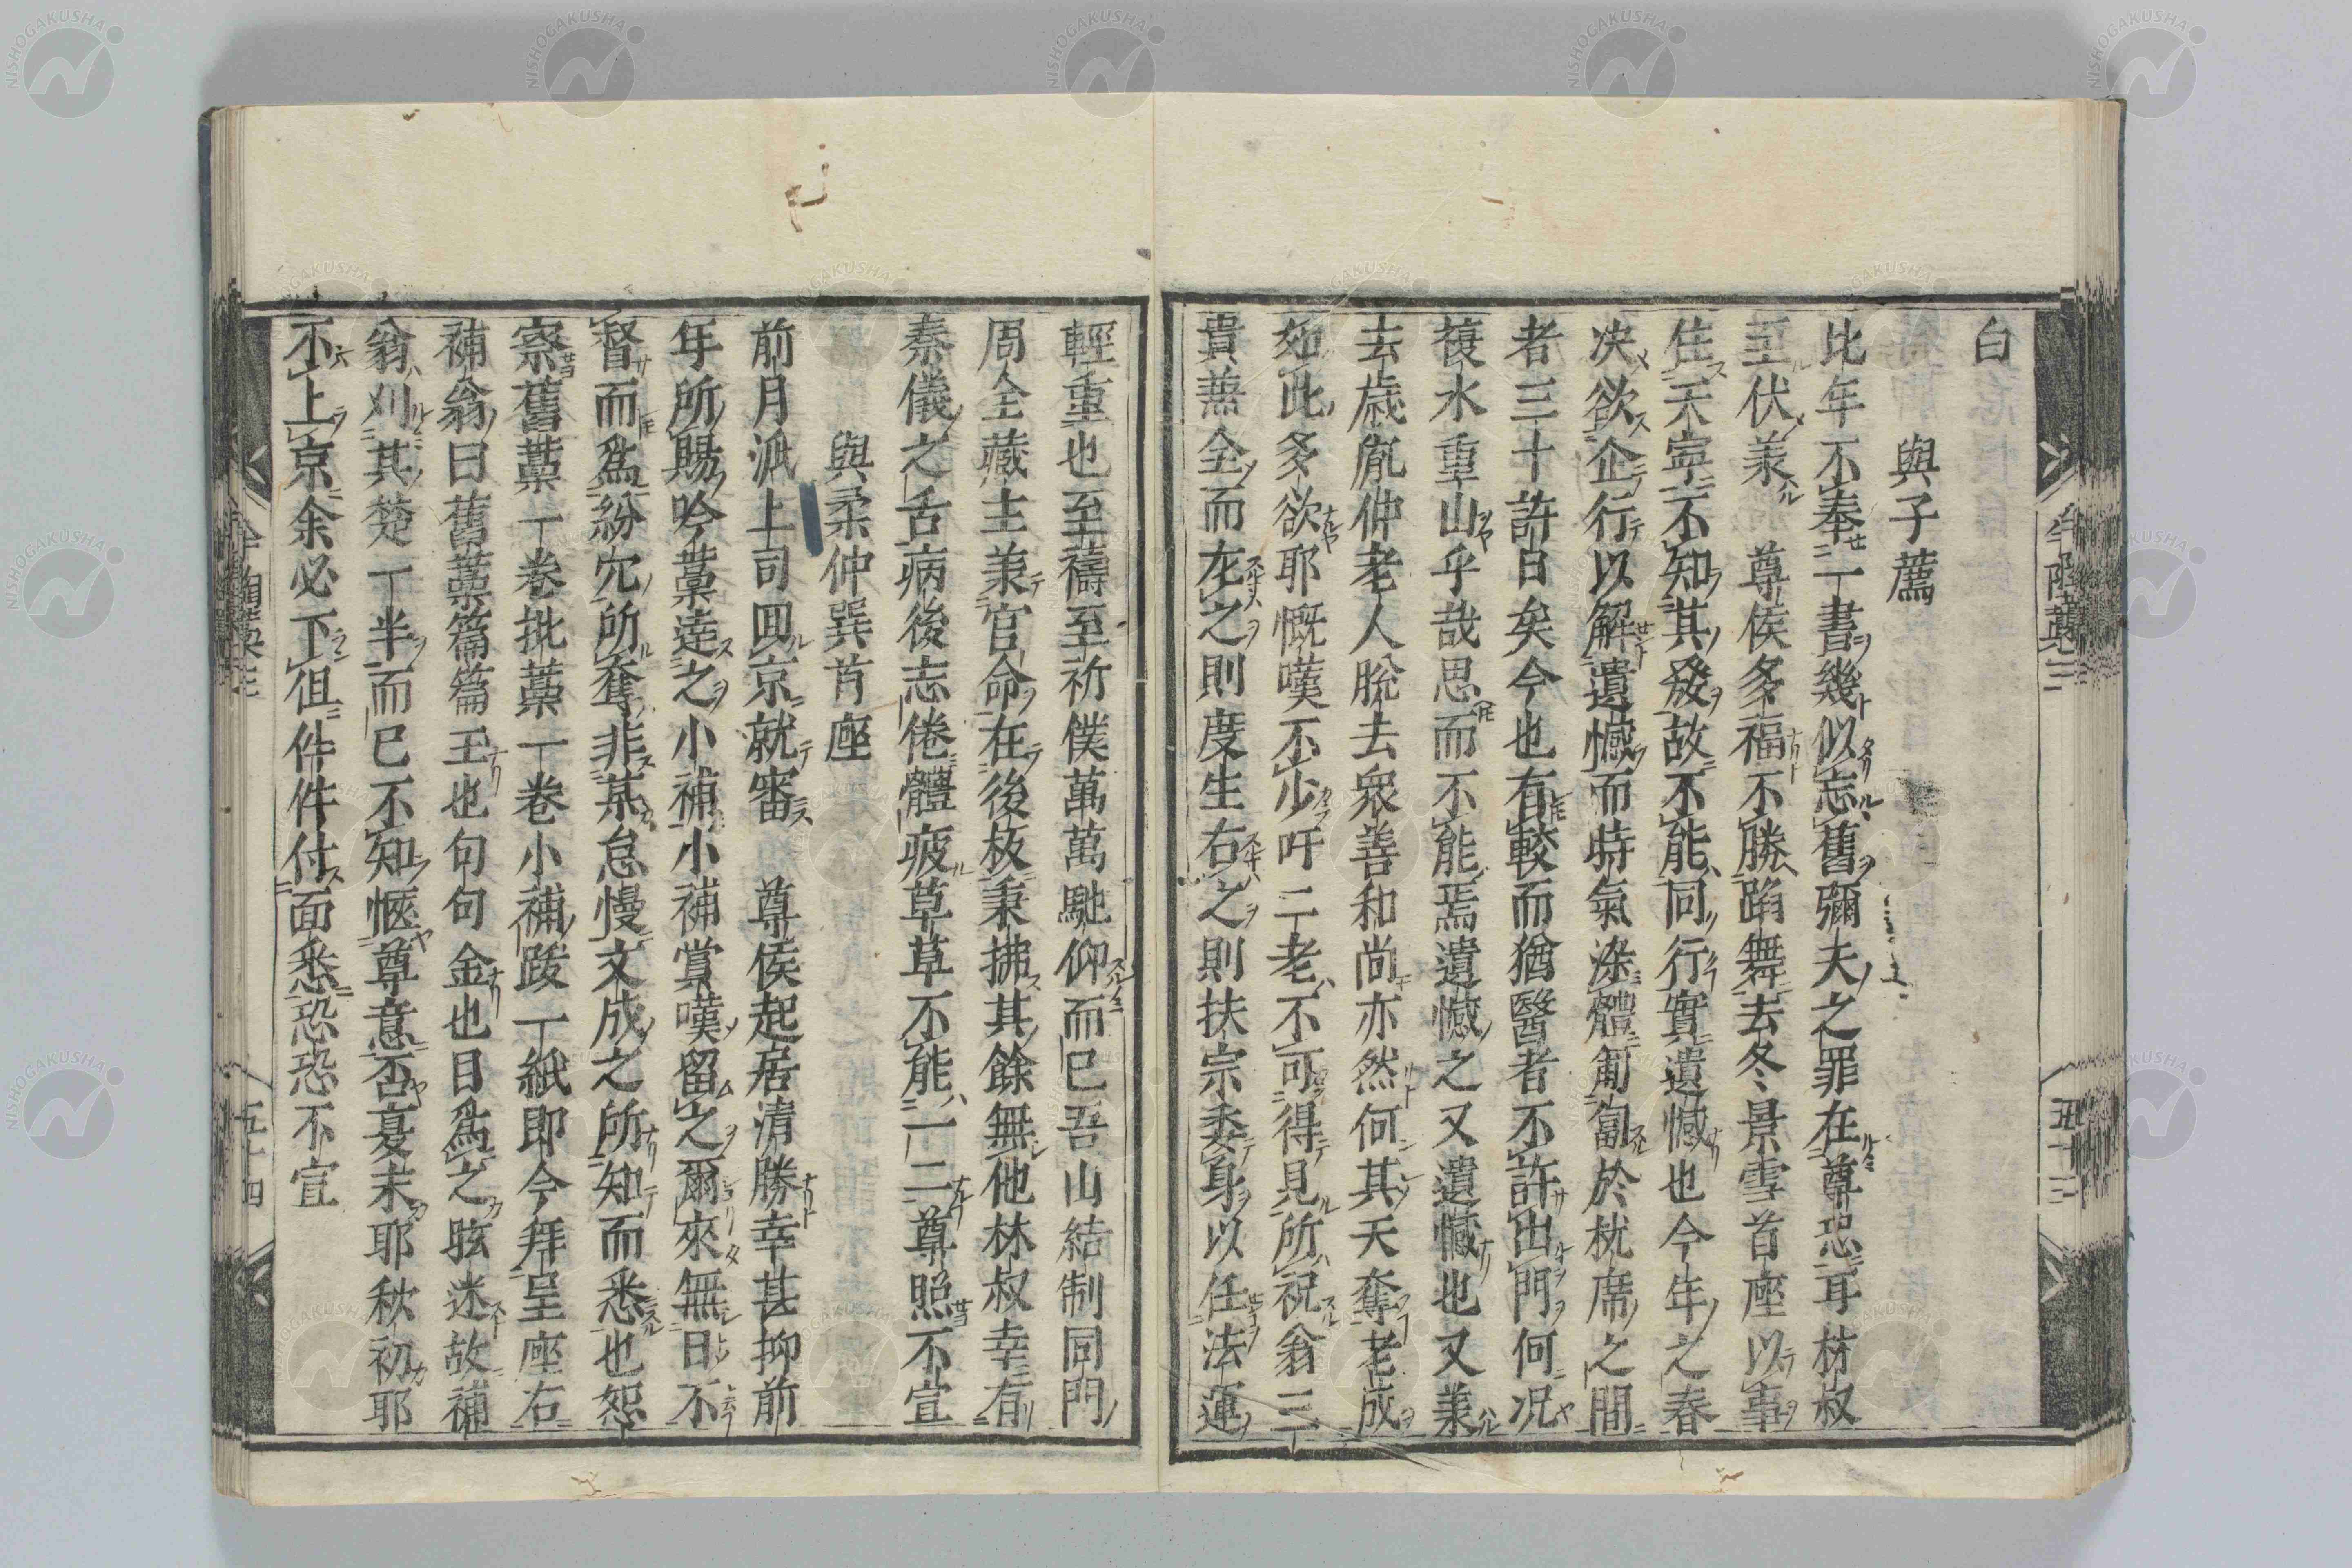 白
與子薦
比年不奉一書幾似忘舊彌夫之罪在尊恕耳林叔
至伏羕尊侯多福不勝蹈舞去冬景雪首座以事
住禾寧不知其發故不能同行實遺憾也今年之春
决欲企行以解遺憾而時氣染體匍匐於枕席之間
者三十許日矣今也有較而猶醫者不許出門何况
複水重山乎哉思而不能焉遺憾之又遺憾也又羕
去歳胤仲老人脫去衆善和尚亦然何其天奪老成
如此多欲耶慨嘆不少吁二老不可得見所祝翁三
貴兼全而左之則度生右之則扶宗委身以任法運
輕重也至禱至祈僕萬萬馳仰而已吾山結制同門
周全藏主羕官命在後板秉拂其餘無他林叔幸有
秦儀之舌病後志倦體疲草草不能一二尊照不宣
與柔仲巽首座
前月派上司回京就審尊侯起居清勝幸甚抑前
年所賜吟藁達之小補小補賞嘆留之爾來無日不
督而爲紛冗所奪非某怠慢文成之所知而悉也恕
察舊藁一卷批藁一卷小補跋一紙即今拜呈座右
補翁曰舊藁篇篇玉也句句金也日爲之眩迷故補
翁刈其楚一半而已不知愜尊意否夏末耶秋初耶
不上京余必下徂件件付面悉恐恐不宣
五十三
五十四
NISHOGAKUSHA